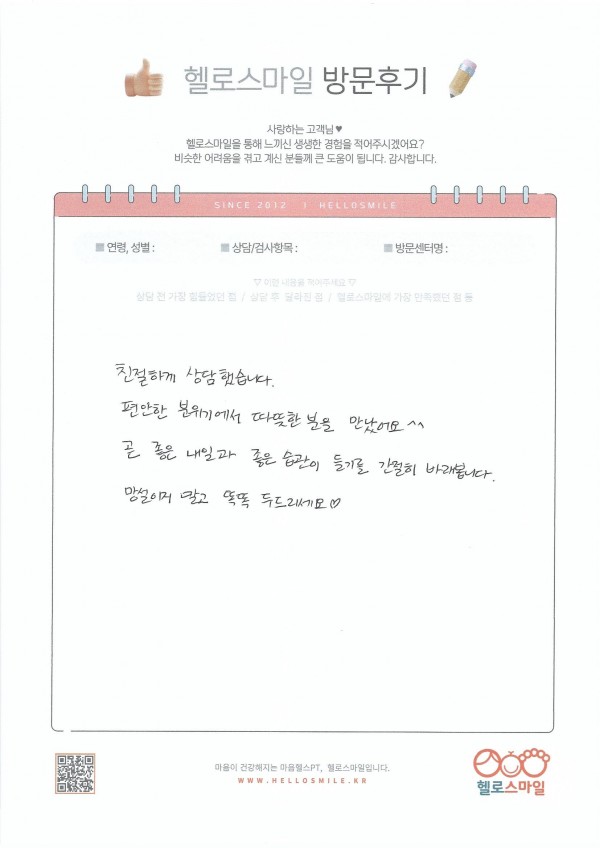 헬로스마일 방문후기
사랑하는 고객님 ♥
헬로스마일을 통해 느끼신 생생한 경험을 적어주시겠어요?
비슷한 어려움을 겪고 계신 분들께 큰 도움이 됩니다. 감사합니다.
SINCE 2012 I HELLOSMILE
연령, 성별 : 상담/검사항목 : 방문센터명 :
▽ 이런 내용을 적어주세요 ▽
상담 전 가장 힘들었던 점 / 상담 후 달라진 점 / 헬로스마일에 가장 만족했던 점 등
친절하게 상담했습니다.
편안한 분위기에서 따뜻한 분을 만났어요^^
곧 좋은 내일과 좋은 습관이 들기를 간절히 바래봅니다.
망설이지 말고 똑똑 두드리세요♡
마음이 건강해지는 마음웰스PT, 헬로스마일입니다.
WWW.HELLOSMILE.KR
헬로스마일